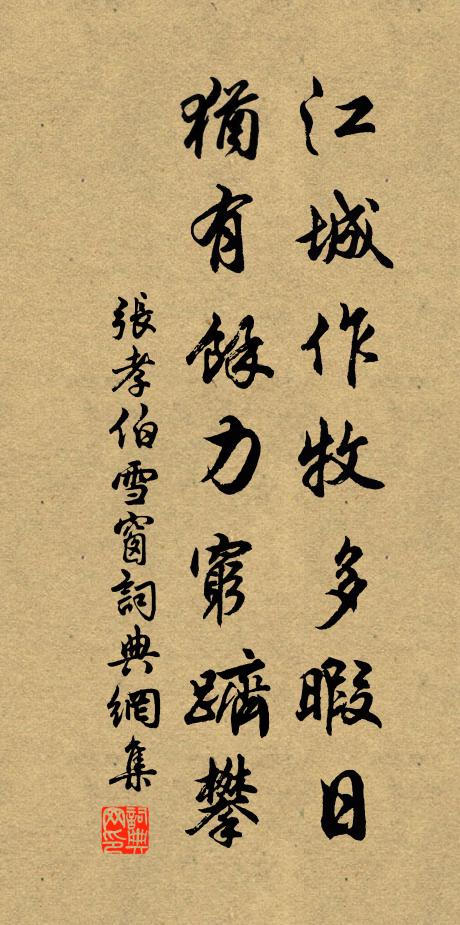 江城作牧多暇日
猶有餘力窮躋攀
張孝伯雪窗詞典網集
詞典網印